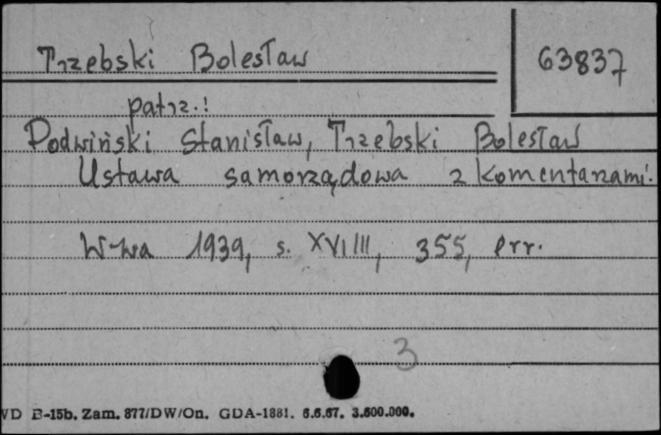 Trzebski Bolesław
63837
patrz.!
Podwiński Stanisław, Trzebski Bolesław
Ustawa samorządowa z komentarzami.
W-wa 1939, s. XVIIII, 355, err.
3
WD B-15b. Zam. 877/DW/On. GDA-1881. 6.6.67. 3.600.000.